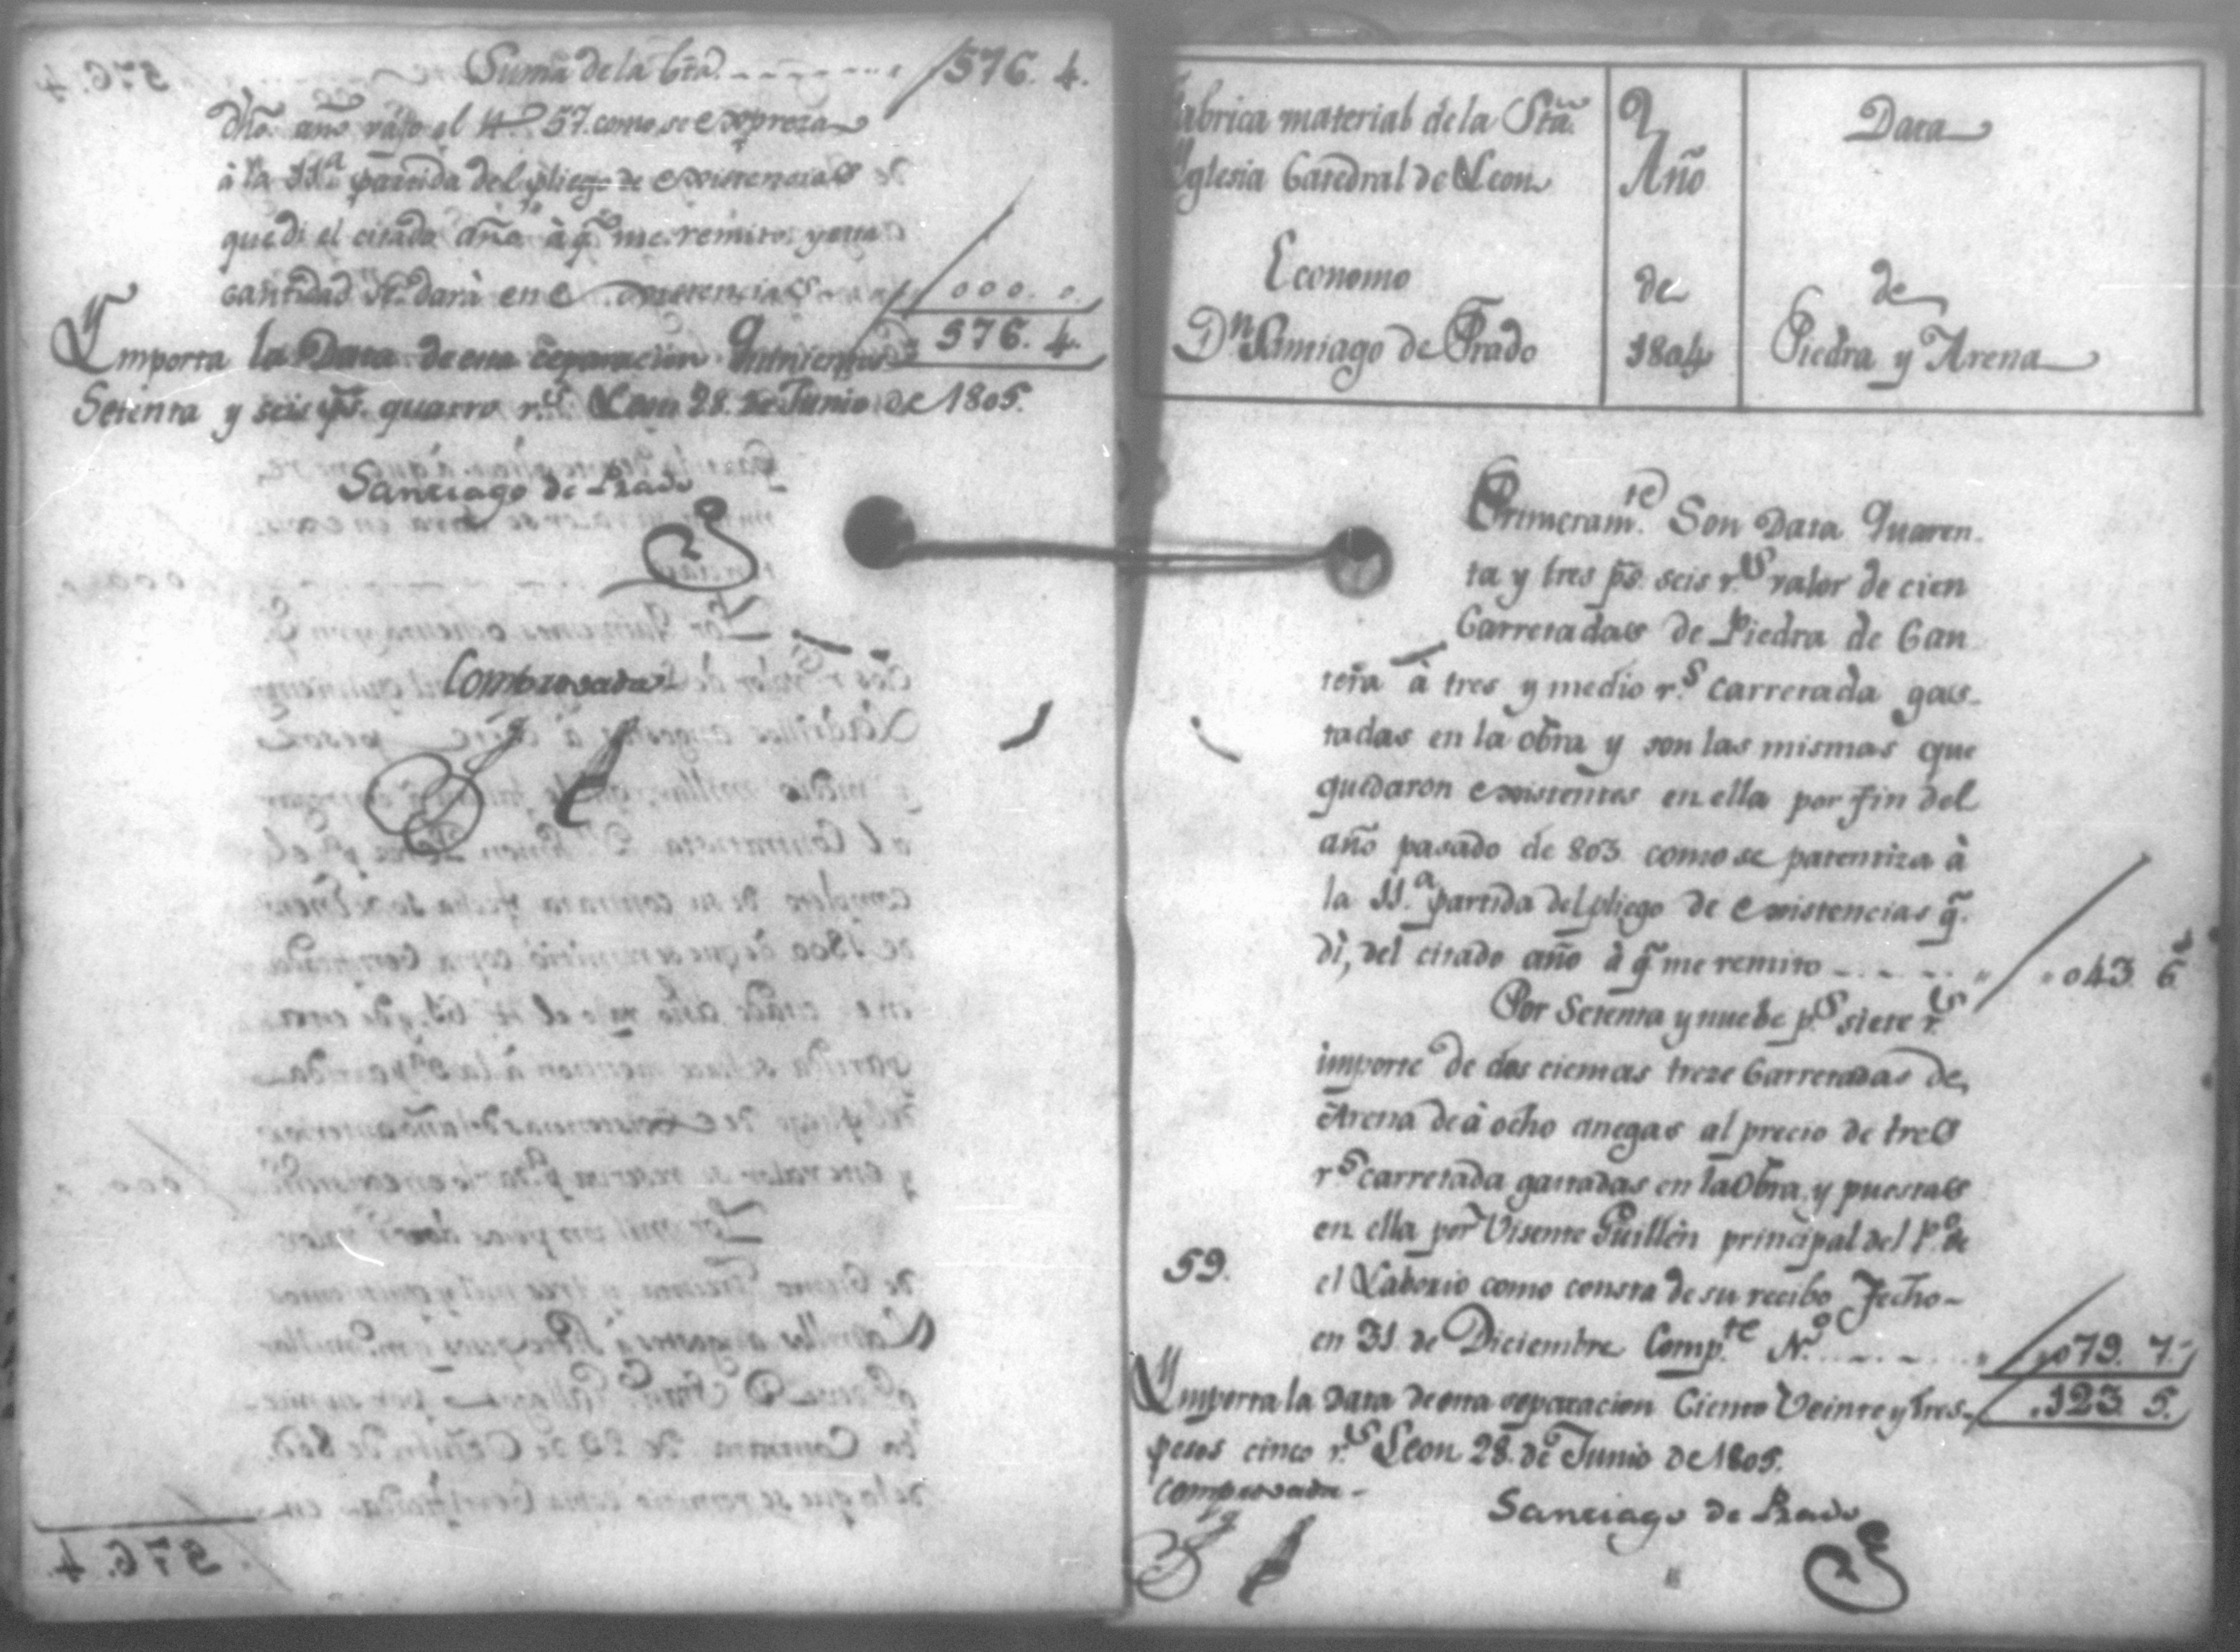 Suma de la bta. 576. 4.
dho. año vájo el N.º 57. como se expreza
à la 11.ª partida del pliego de existencias
que di el citado año à q.e me remito, y esta
cantidad se dará en existencias 000. 0.
Ymporta la Data de esta separacion Quinientos 576. 4.
Setenta y seis p.s quatro r.s Leon 28. de Junio de 1805.
Santiago de Prado
Comprovada
Fabrica material de la Sta.
Yglesia Catedral de Leon
Economo
Dn Santiago de Prado
Año
de
1804
Data
de
Piedra y Arena
Primeram.te Son Data Quaren-
ta y tres p.s seis r.s valor de cien
Carretadas de Piedra de Can
tera à tres y medio r.s carretada gas-
tadas en la obra y son las mismas que
quedaron existentes en ella por fin del
año pasado de 803 como se patentiza à
la 11.ª partida del pliego de existencias q.
dì, del citado año à q. me remito 043. 6
Por Setenta y nuebe p.s siete r.s
importe de dos cientas treze Carretadas de
Arena de à ocho anegas al precio de tres
r.s carretada gastadas en la Obra, y puestas
en ella por Visente Guillén principal del P.º de
59. el Laborio como consta de su recibo Fecho
en 31 de Diciembre Comp.te N.º 079. 7.
Ymporta la Data de esta separacion Ciento Veinte y tres 123. 5.
pesos cinco r.s Leon 28. de Junio de 1805.
comprovada
Santiago de Prado